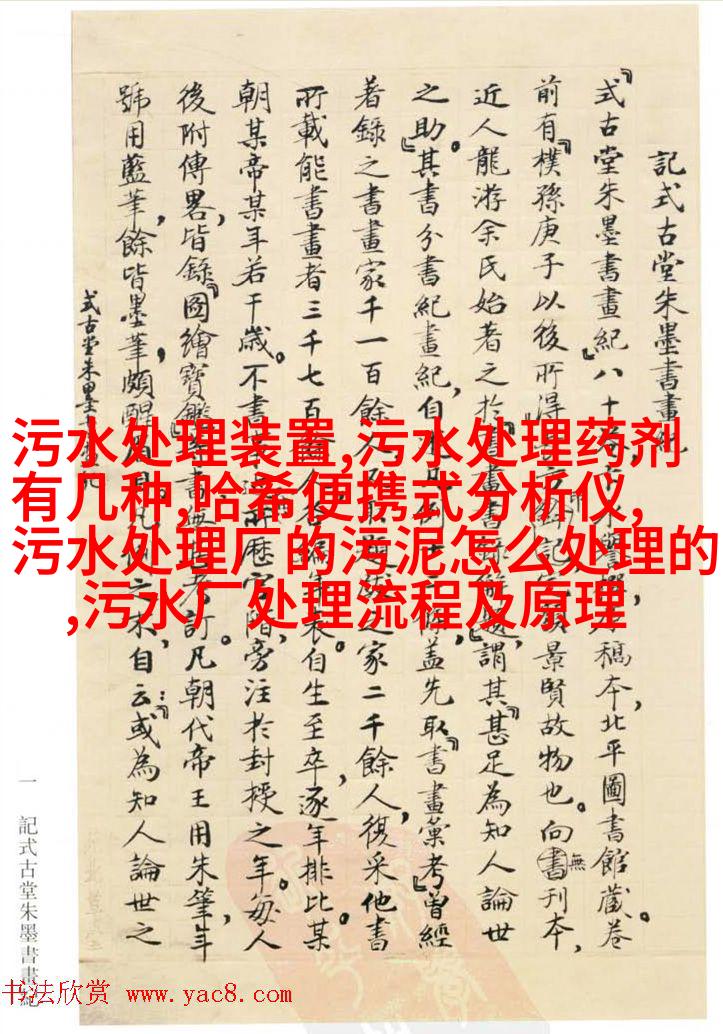 記式古堂朱墨書畫紀
『式古堂朱墨書畫紀』八十
稿本,北平圖書館藏。卷
前有『樸孫庚子以後所得』
景賢故物也。向無書刊本,
近人龍游余氏始著之於『書畫書錄解題』,謂其『甚足為知人論世
之助』。其書分書紀畫紀,自
蓋先取『書畫彙考』曾經
著錄之書畫家千一百餘人
之家二千餘人,復采他書
所載能書畫者三千七百
自生至卒,逐年排比某
朝某帝某年若干歲。不書
所歷官階,旁注於封授之年。每人
後附傳畧,皆錄『圖繪寶鑑』
訂。凡朝代帝王用朱筆,年
號用藍筆,餘皆墨筆,頗醒
之木,自云:或為知人論世之
式古堂朱墨書畫紀
一 記式古堂朱墨書畫紀
污水处理装置,污水处理药剂
有几种,哈希便携式分析仪,
污水处理厂的污泥怎么处理的
,污水厂处理流程及原理
书法欣赏 www.yac8.com